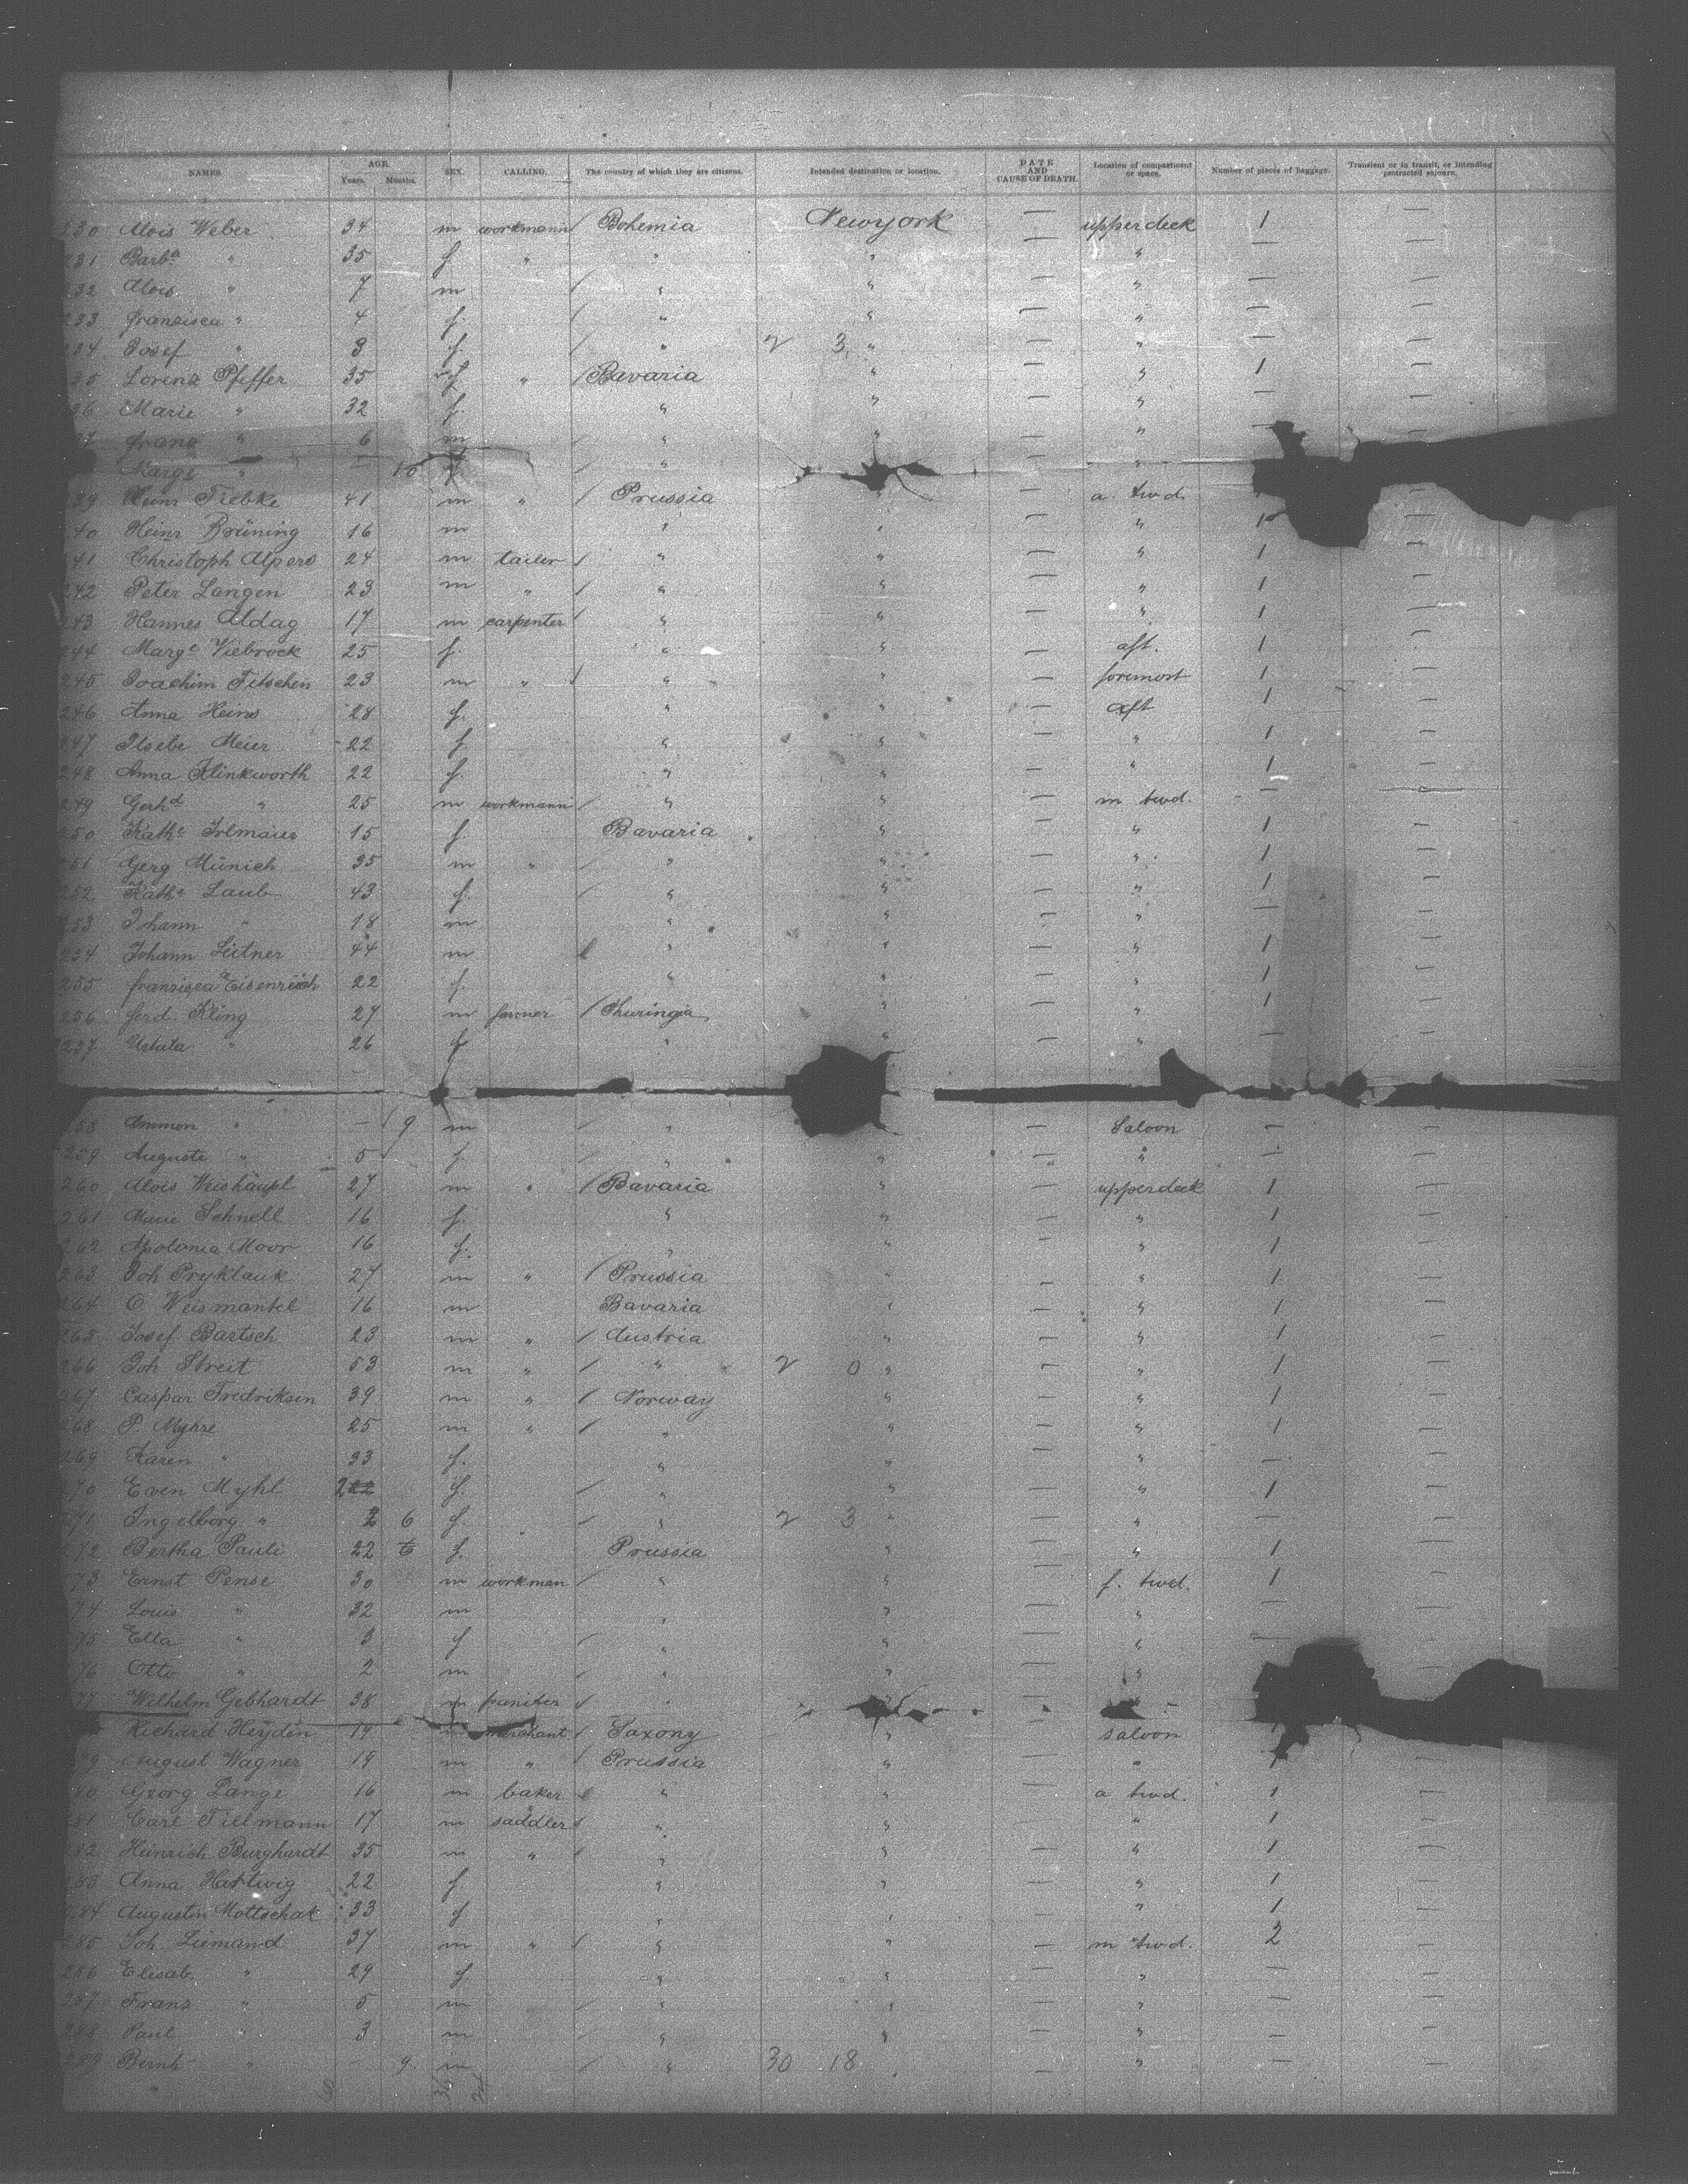 NAMES. AGE. Years. Months. SEX. CALLING. The country of which they are citizens. Intended destination or location. DATE AND CAUSE OF DEATH. Location of compartment or space. Number of pieces of baggage. Transient or in transit, or intending protracted sojourn.
230 Alois Weber 34 m workmann / Bohemia Newyork — upperdeck 1 —
231 Barba " 35 f " " " — " — —
232 Alois " 7 m / " " — " — —
233 franzisca " 4 f. / " " — " — —
234 Josef " 3 f. / " 2 3 " — " — —
35 Lorenz Pfeffer 35 " / Bavaria " — " 1 —
36 Marie " 32 f. " " — " — —
37 franz " 6 m / " " — " — —
Marge " — 10 f. / " — "
39 Heinr Tiebke 41 m " / Prussia " — a. twd. —
40 Heinr Brüning 16 m " " — " 1 —
241 Christoph Alpers 24 m tailor / " " — " 1 —
242 Peter Langen 23 m " / " " — " 1 —
243 Hannes Aldag 17 m carpenter / " " — " 1 —
244 Marge Viebrock 25 f. " " — aft. 1 —
245 Joachim Fitschen 23 m " / " " — foremost 1 —
246 Anna Heins 28 f. " " — aft 1 —
247 Ilsebe Meier 22 f " " — " 1 —
248 Anna Klinkworth 22 f. " " — " 1 —
249 Gerhd " 25 m workmann / " " — m twd. — —
250 Kathe Irlmaier 15 f Bavaria " — " 1 —
251 Gerg Münich 35 m " / " " — " 1 —
252 Kathe Laub 43 f. / " " — " 1 —
253 Johann " 18 m " " — " — —
254 Johann Leitner 44 m / " " — " 1 —
255 franzisca Eisenreich 22 f. " " — " 1 —
256 ferd. Kling 27 m farmer / Thuringia " — " 1 —
237 Ustula " 26 f " " — " — —
258 Ammon " — 9 m / " — Saloon — —
259 Auguste " 5 f. / " " — " — —
260 Alois Weishäupl 27 m " / Bavaria " — upperdeck 1 —
261 Marie Schnell 16 f. " " — " 1 —
262 Apolonia Moor 16 f. " " — " 1 —
263 Joh Pryklauk 27 m " / Prussia " — " 1 —
264 O. Weismantel 16 m Bavaria " — " 1 —
265 Josef Bartsch 23 m " / Austria " — " 1 —
266 Joh Streit 53 m " / " 2 0 " — " 1 —
267 Caspar Fredriksen 39 m " / Norway " — " 1 —
268 P. Myhre 25 m " / " " — " 1 —
269 Karen " 33 f. " " — " — —
270 Even Myhl f. / " " — " 1 —
271 Ingelborg " 2 6 f. / " 2 3 " — " — —
272 Bertha Pauli 22 f. Prussia " — " 1 —
273 Ernst Pense 30 m workman / " " — f. twd. 1 —
74 Louis " 32 m " " — " — —
75 Ella " 3 f / " " — " — —
76 Otto " 2 m / " " — "
77 Wilhelm Gebhardt 38 m / " —
Richard Heyden 19 m merchant / Saxony " — saloon
79 August Wagner 19 m " / Prussia " — " 1 —
80 Georg Lange 16 m baker / " " — a twd. 1 —
281 Carl Tillmann 17 m saddler / " " — " 1 —
282 Heinrich Burghardt 35 m " / " " — " 1 —
283 Anna Hartwig 22 f " " — " 1 —
284 Augustin Mottschak 33 f " " — " 1 —
285 Joh. Liemand 37 m " / " " — m twd. 2 —
286 Elisab. " 29 f " " — " — —
287 Franz " 5 m / " " — " — —
288 Paul " 3 m / " " — " — —
289 Bernh " — 9. m / " 30 18 — " — —